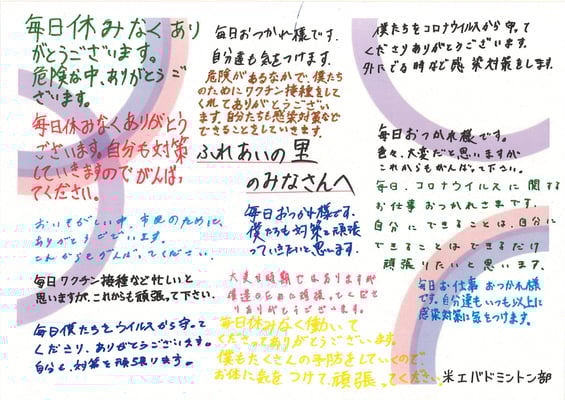 毎日休みなくあり
がとうございます。
危険な中、ありがとうご
ざいます。
毎日休みなくありがとう
ございます。自分も対策
していきますのでがんばっ
てください。
おいそがしい中、市民のために、
ありがとうございます。
これからもがんばってください。
毎日ワクチン接種など忙しいと
思いますが、これからも頑張って下さい。
毎日僕たちをウイルスから守って
くださり、ありがとうございます。
自分も対策を頑張ります。
毎日おつかれ様です。
自分達も気をつけます。
危険があるなかで、僕たち
のためにワクチン接種をして
くれてありがとうござい
ます。自分たちも感染対策など
できることをしていきます。
ふれあいの里
のみなさんへ
毎日お疲れ様です。
僕たちも対策を頑張っ
ていきたいと思います。
大変な時期ではありますが
僕達のために頑張ってくださ
りありがとうございます。
毎日休みなく働いて
くださってありがとうございます。
僕もたくさんの予防をしていくので、
お体に気をつけて、頑張ってください。
僕たちをコロナウイルスから守って
くださりありがとうございます。
外にでる時など感染対策をします。
毎日おつかれ様です。
色々、大変だと思いますが
これからもがんばって下さい。
毎日、コロナウイルスに関する
お仕事おつかれさまです。
自分にできることは、自分に
できることはできるだけ
頑張りたいと思います。
毎日お仕事おつかれ様
です。自分達もいつも以上に
感染対策に気をつけます。
米工バドミントン部